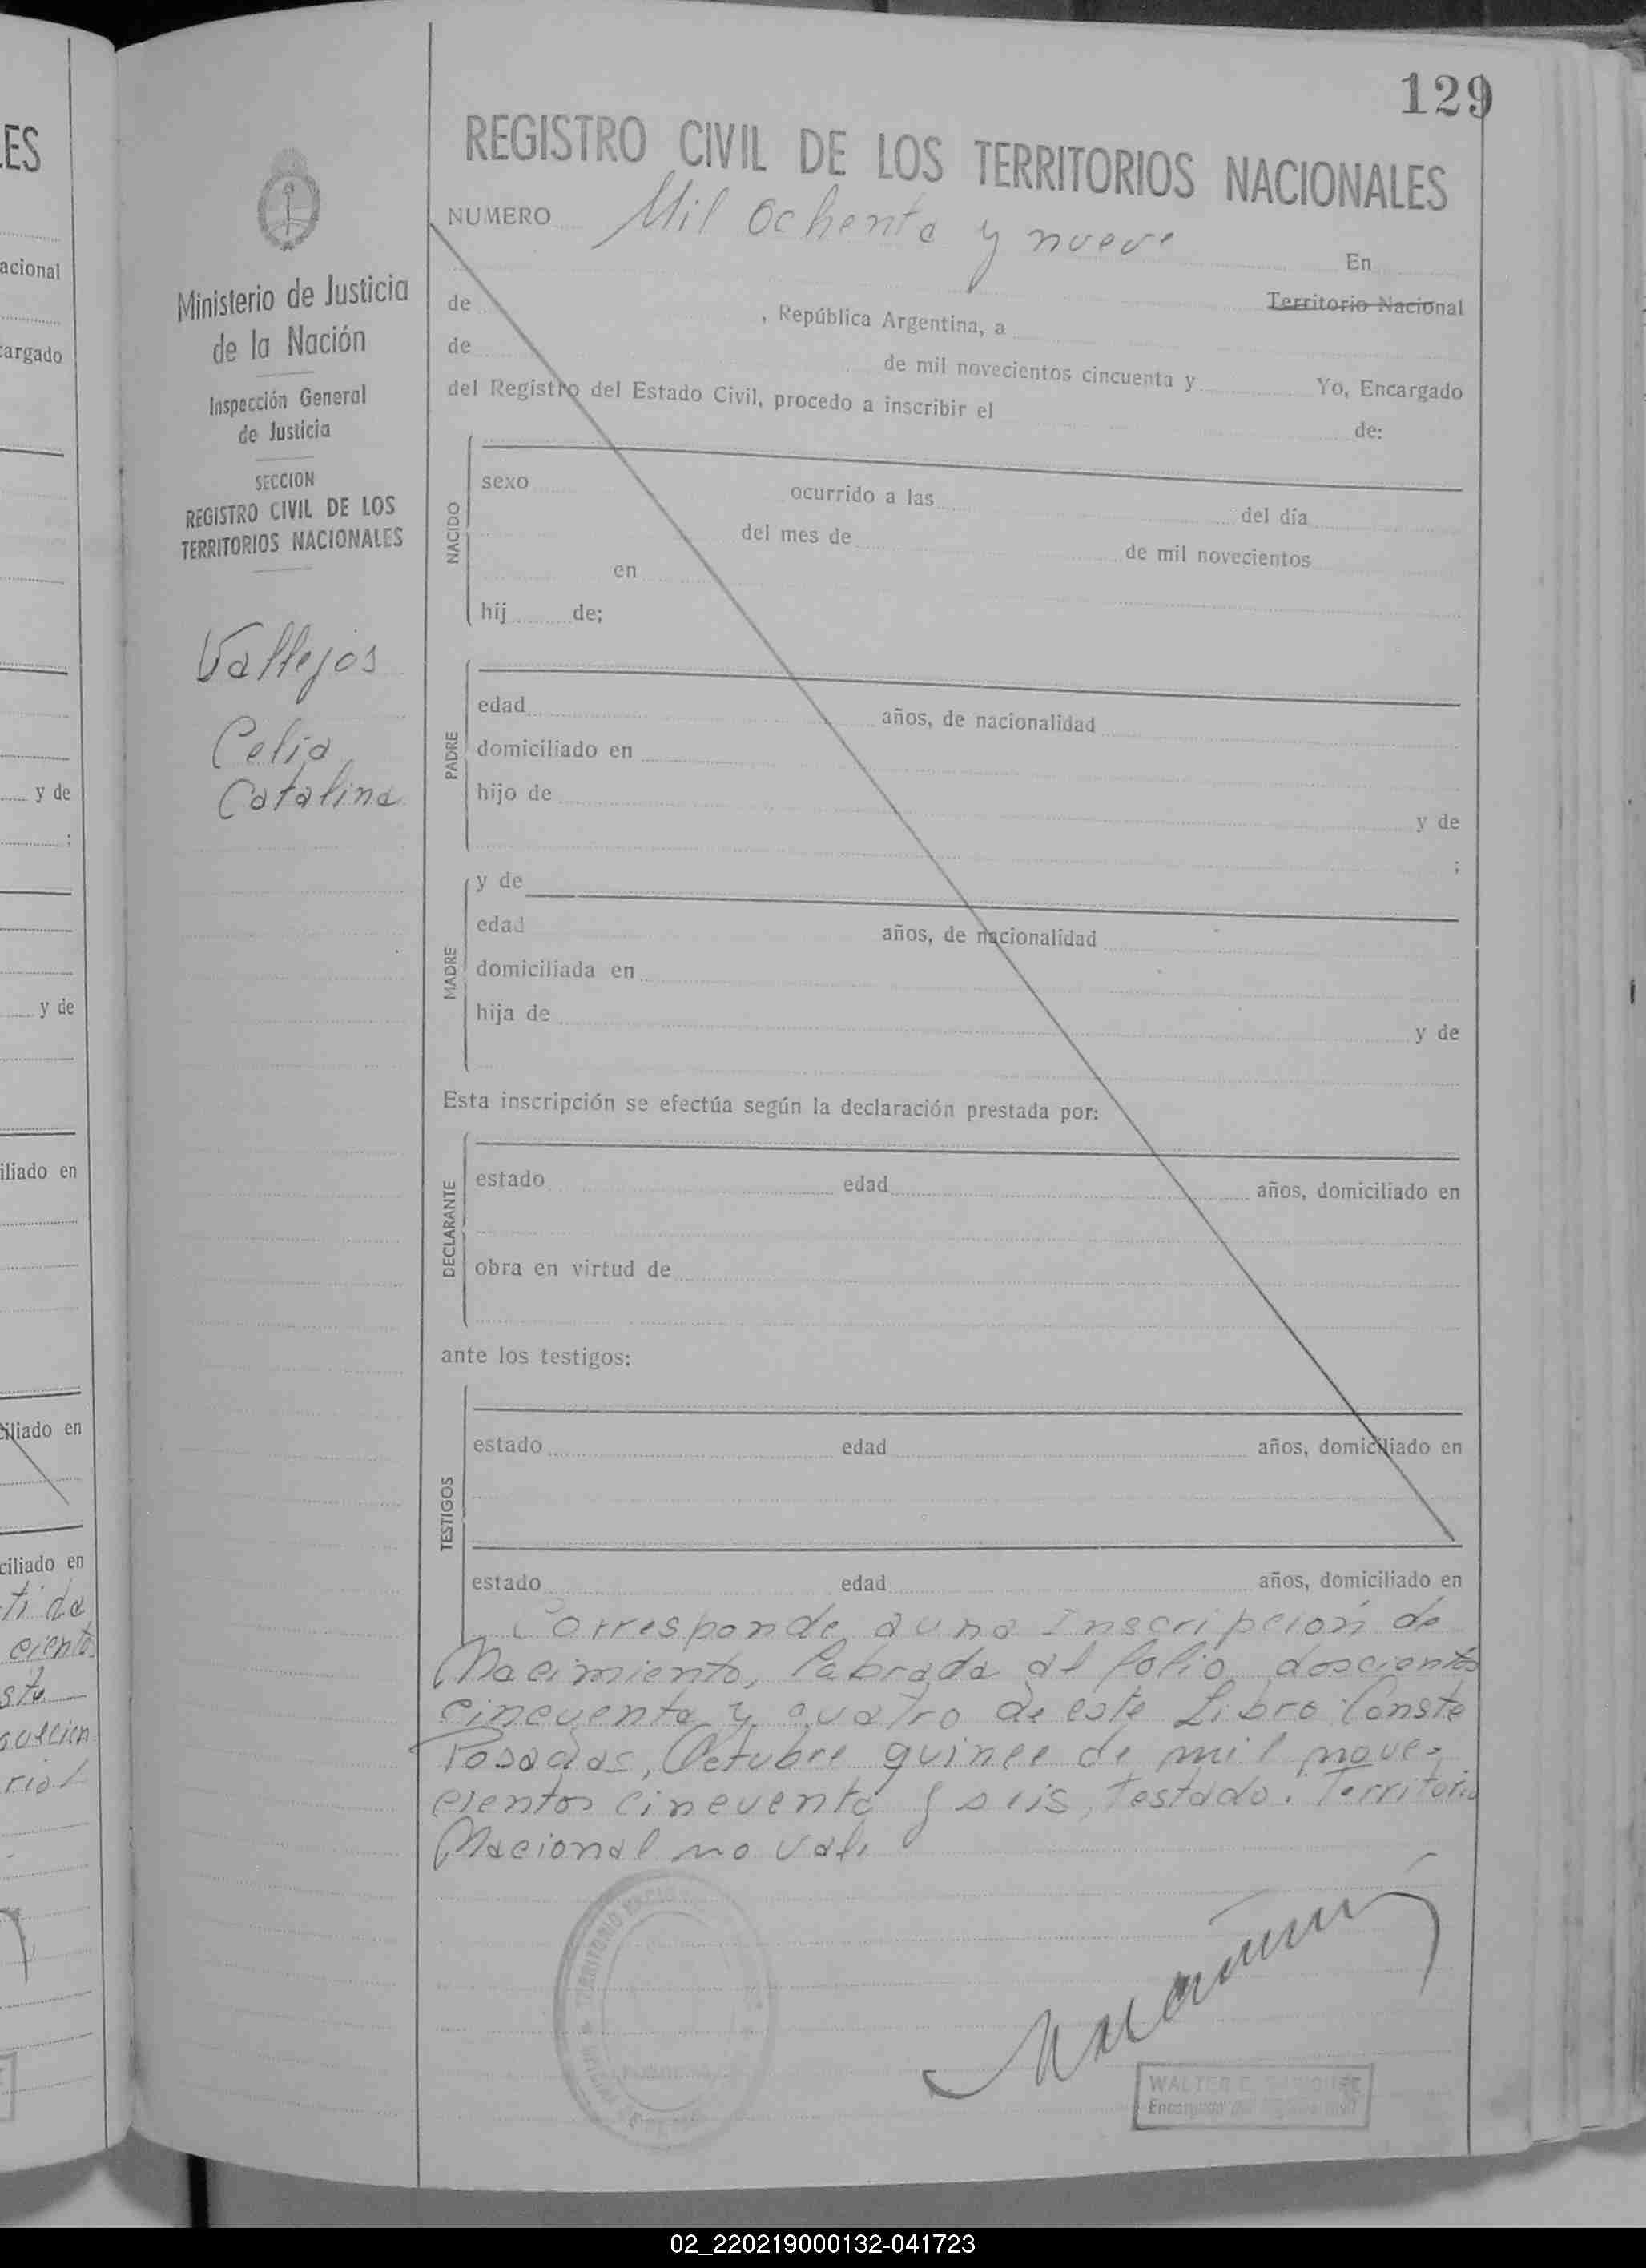 129
REGISTRO CIVIL DE LOS TERRITORIOS NACIONALES
NUMERO Mil ochenta y nueve
En
de Territorio Nacional
, República Argentina, a
de
de mil novecientos cincuenta y Yo, Encargado
del Registro del Estado Civil, procedo a inscribir el
de:
Ministerio de Justicia
de la Nación
Inspección General
de Justicia
SECCION
REGISTRO CIVIL DE LOS
TERRITORIOS NACIONALES
Vallejos
Celia
Catalina
NACIDO
sexo ocurrido a las del día
del mes de de mil novecientos
en
hij de;
PADRE
edad años, de nacionalidad
domiciliado en
hijo de y de
;
MADRE
y de
edad años, de nacionalidad
domiciliada en
hija de y de
Esta inscripción se efectúa según la declaración prestada por:
DECLARANTE
estado edad años, domiciliado en
obra en virtud de
ante los testigos:
TESTIGOS
estado edad años, domiciliado en
estado edad años, domiciliado en
Corresponde a una Inscripción de
Nacimiento, labrada al folio doscientos
cincuenta y cuatro de este Libro Conste
Posadas, Octubre quince de mil nove-
cientos cincuenta y seis, testado: Territorio
Nacional no vale
TERRITORIO
WALTER E.
Encargado del Registro Civil
ES
acional
cargado
y de
;
y de
iliado en
ciliado en
ciliado en
02_220219000132-041723